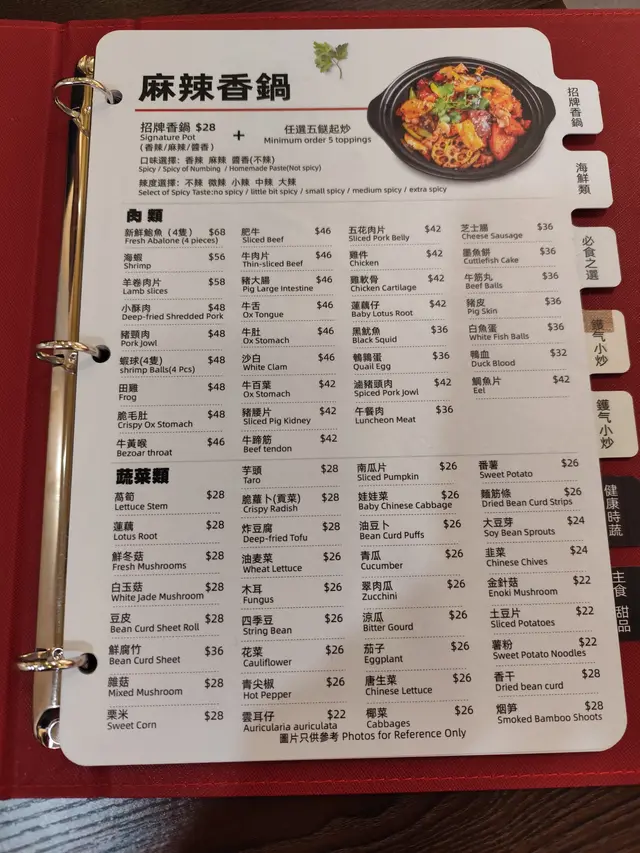 麻辣香鍋
招牌香鍋 $28
Signature Pot
(香辣/麻辣/醬香)
+
任選五餸起炒
Minimum order 5 toppings
口味選擇: 香辣 麻辣 醬香(不辣)
Spicy / Spicy of Numbing / Homemade Paste(Not spicy)
辣度選擇: 不辣 微辣 小辣 中辣 大辣
Select of Spicy Taste:no spicy / little bit spicy / small spicy / medium spicy / extra spicy
肉類
新鮮鮑魚 (4隻) $68
Fresh Abalone (4 pieces)
海蝦 $56
Shrimp
羊卷肉片 $58
Lamb slices
小酥肉 $48
Deep-fried Shredded Pork
豬頸肉 $48
Pork Jowl
蝦球(4隻) $48
shrimp Balls(4 Pcs)
田雞 $48
Frog
脆毛肚 $48
Crispy Ox Stomach
牛黃喉 $46
Bezoar throat
肥牛 $46
Sliced Beef
牛肉片 $46
Thin-sliced Beef
豬大腸 $46
Pig Large Intestine
牛舌 $46
Ox Tongue
牛肚 $46
Ox Stomach
沙白 $46
White Clam
牛百葉 $42
Ox Stomach
豬腰片 $42
Sliced Pig Kidney
牛蹄筋 $42
Beef tendon
五花肉片 $42
Sliced Pork Belly
雞件 $42
Chicken
雞軟骨 $42
Chicken Cartilage
蓮藕仔 $42
Baby Lotus Root
黑魷魚 $36
Black Squid
鵪鶉蛋 $36
Quail Egg
滷豬頭肉 $42
Spiced Pork Jowl
午餐肉 $36
Luncheon Meat
芝士腸 $36
Cheese Sausage
墨魚餅 $36
Cuttlefish Cake
牛筋丸 $36
Beef Balls
豬皮 $36
Pig Skin
白魚蛋 $36
White Fish Balls
鴨血 $32
Duck Blood
鱔魚片 $42
Eel
蔬菜類
萵筍 $28
Lettuce Stem
蓮藕 $28
Lotus Root
鮮冬菇 $28
Fresh Mushrooms
白玉菇 $28
White Jade Mushroom
豆皮 $28
Bean Curd Sheet Roll
鮮腐竹 $36
Bean Curd Sheet
雜菇 $28
Mixed Mushroom
粟米 $28
Sweet Corn
芋頭 $28
Taro
脆蘿卜(貢菜) $28
Crispy Radish
炸豆腐 $28
Deep-fried Tofu
油麥菜 $26
Wheat Lettuce
木耳 $26
Fungus
四季豆 $26
String Bean
花菜 $26
Cauliflower
青尖椒 $26
Hot Pepper
雲耳仔 $22
Auricularia auriculata
南瓜片 $26
Sliced Pumpkin
娃娃菜 $26
Baby Chinese Cabbage
油豆卜 $26
Bean Curd Puffs
青瓜 $26
Cucumber
翠肉瓜 $26
Zucchini
涼瓜 $26
Bitter Gourd
茄子 $26
Eggplant
唐生菜 $26
Chinese Lettuce
椰菜 $26
Cabbages
番薯 $26
Sweet Potato
麵筋條 $26
Dried Bean Curd Strips
大豆芽 $24
Soy Bean Sprouts
韭菜 $24
Chinese Chives
金針菇 $22
Enoki Mushroom
土豆片 $22
Sliced Potatoes
薯粉 $22
Sweet Potato Noodles
香干 $28
Dried bean curd
烟笋 $28
Smoked Bamboo Shoots
圖片只供參考 Photos for Reference Only
招牌香鍋
海鮮類
必食之選
鑊气小炒
鑊气小炒
健康時蔬
主食 甜品